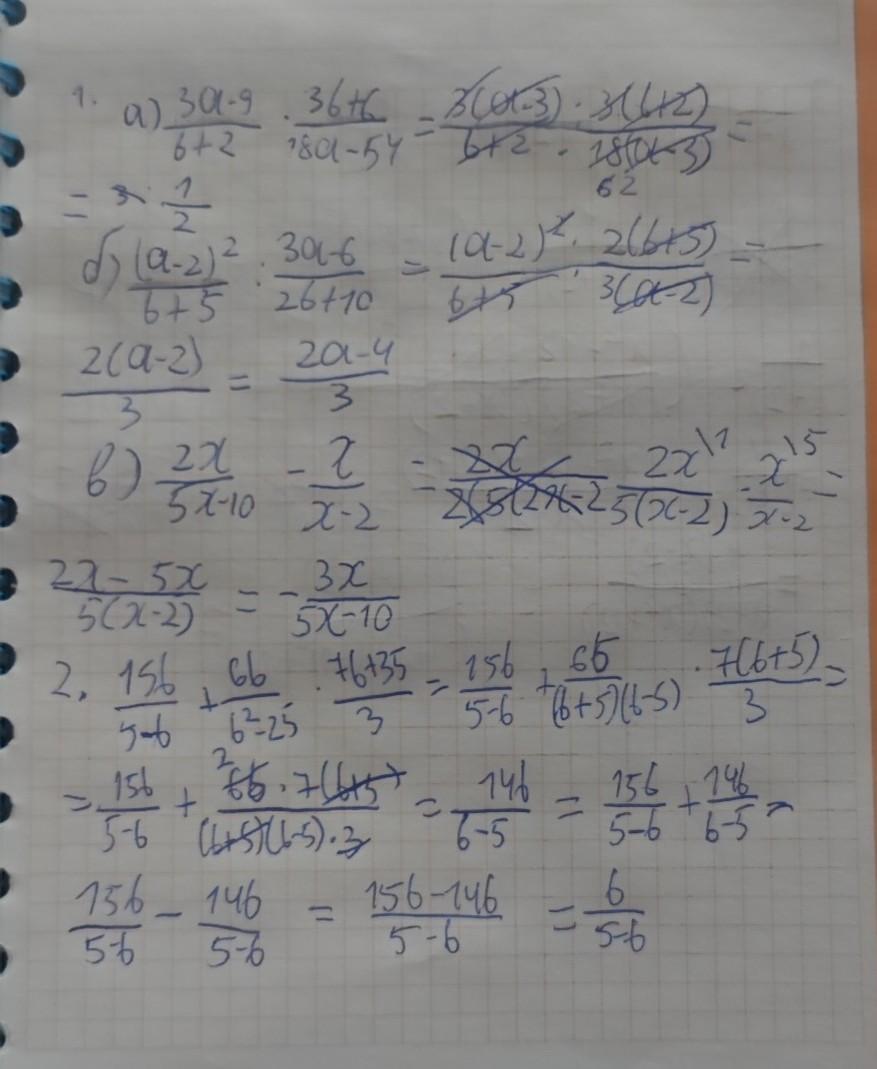 1. а) (3a-9)/(b+2) · (3b+6)/(18a-54) = (3(a-3) · 3(b+2))/(b+2 · 18(a-3)) =
= 1/2
б) (a-2)²/(b+5) : (3a-6)/(2b+10) = ((a-2)² · 2(b+5))/(b+5 · 3(a-2)) =
2(a-2)/3 = (2a-4)/3
в) 2x/(5x-10) - x/(x-2) = 2x\1/5(x-2) - x\5/(x-2) =
(2x-5x)/5(x-2) = -3x/(5x-10)
2. 15b/(5-b) + 6b/(b²-25) · (7b+35)/3 = 15b/(5-b) + 6b/(b+5)(b-5) · 7(b+5)/3 =
= 15b/(5-b) + (6b · 7(b+5))/((b+5)(b-5) · 3) = 14b/(b-5) = 15b/(5-b) + 14b/(b-5) =
15b/(5-b) - 14b/(5-b) = (15b-14b)/(5-b) = b/(5-b)